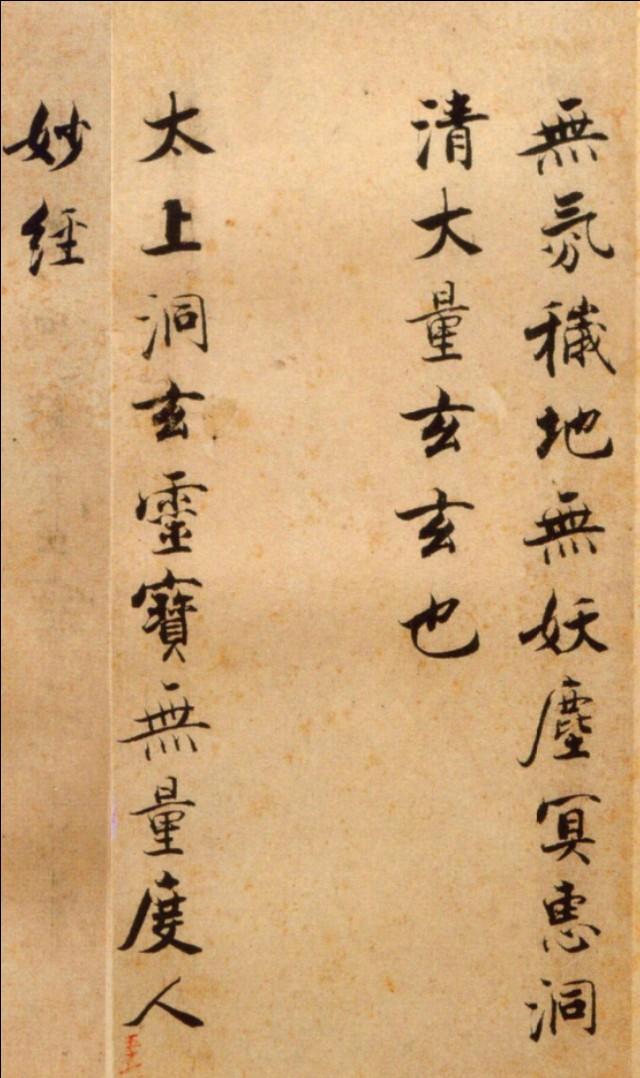 無氛穢地無妖塵冥惠洞
清大量玄玄也
太上洞玄靈寶無量度人
妙經